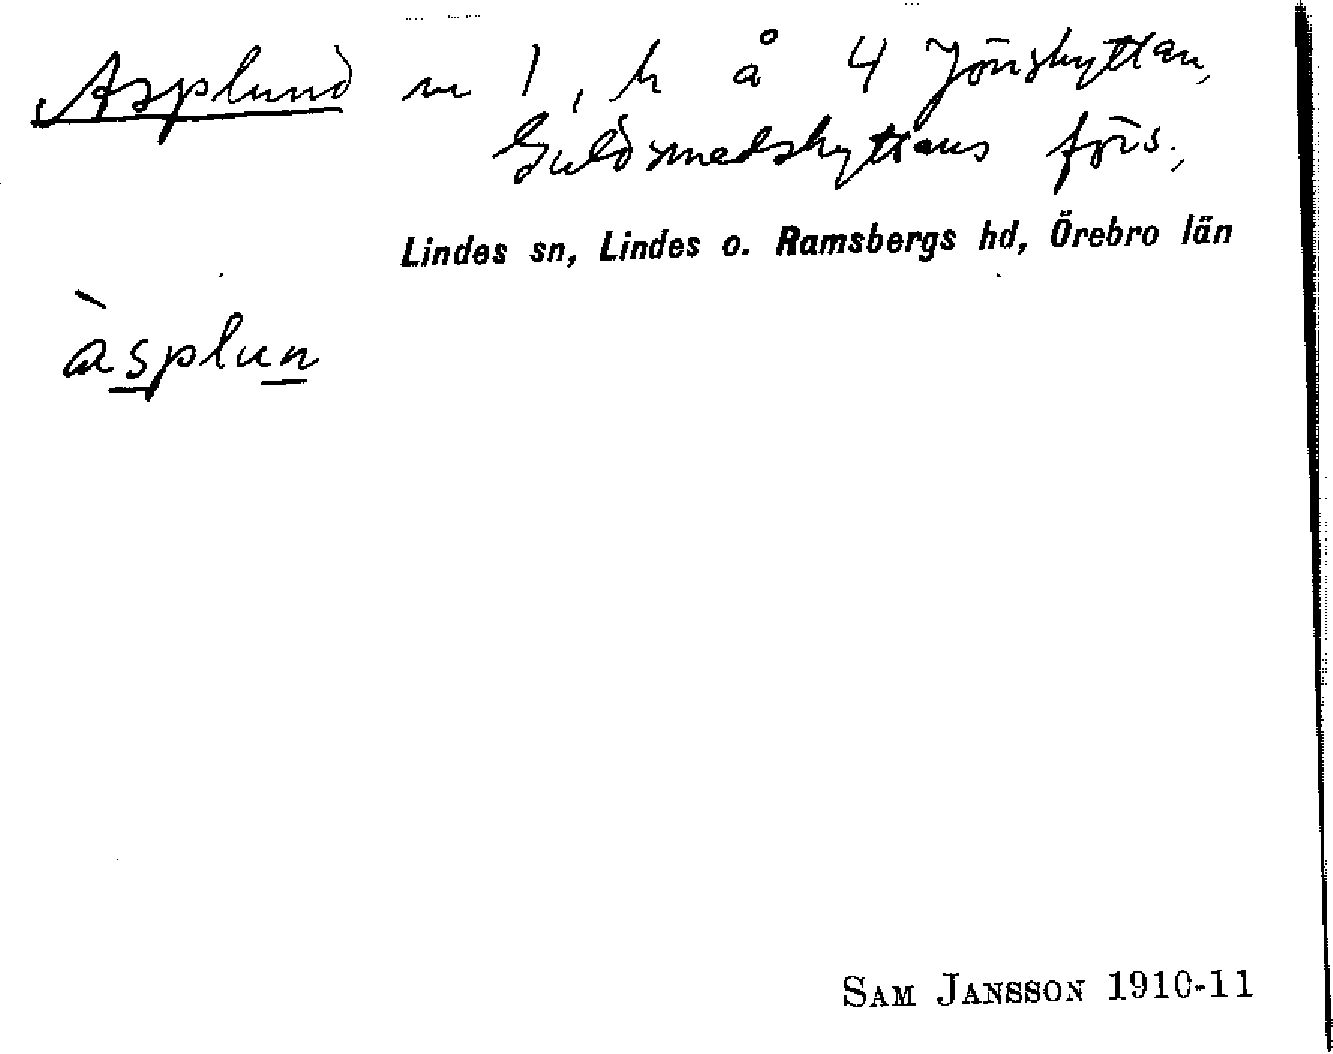 Asplund m 1, h å 4 Jönshyttan,
Guldsmedshyttans förs.,
Lindes sn, Lindes o. Ramsbergs hd, Örebro län
àsplun
SAM JANSSON 1910-11